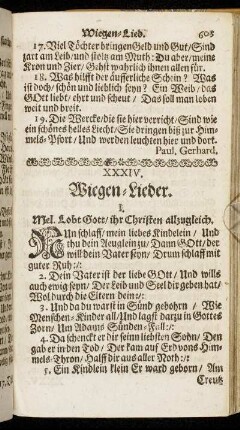 Wiegen-Lied. 603
17. Viel Töchter bringen Geld und Gut/ Sind
zart am Leib/ und stoltz am Muth: Du aber/ meine
Kron und Zier/ Gehst wahrlich ihnen allen für.
18. Was hilfft der äusserliche Schein? Was
ist doch/ schön und lieblich seyn? Ein Weib/ das
GOtt liebt/ ehrt und scheut/ Das soll man loben
weit und breit.
19. Die Wercke/ die sie hier verricht/ Sind wie
ein schönes helles Liecht/ Sie dringen biß zur Him-
mels-Pfort/ Und werden leuchten hier und dort.
Paul. Gerhard.
XXXIV.
Wiegen-Lieder.
I.
Mel. Lobt Gott/ ihr Christen allzugleich.
NUn schlaff/ mein liebes Kindelein/ Und
thu dein Aeuglein zu; Dann GOtt/ der
will dein Vater seyn/ Drum schlaff mit
guter Ruh:/:
2. Dein Vater ist der liebe GOtt/ Und wills
auch ewig seyn/ Der Leib und Seel dir geben hat/
Wol durch die Eltern dein:/:
3. Und da du warst in Sünd gebohrn/ Wie
Menschen-Kinder all/ Und lagst darzu in Gottes
Zorn/ Um Adams Sünden-Fall:/:
4. Da schenckt er dir seinn liebsten Sohn/ Den
gab er in den Tod/ Der kam auf Erd vons Him-
mels-Thron/ Halff dir aus aller Noth:/:
5. Ein Kindlein klein Er ward geborn/ Am
Creutz